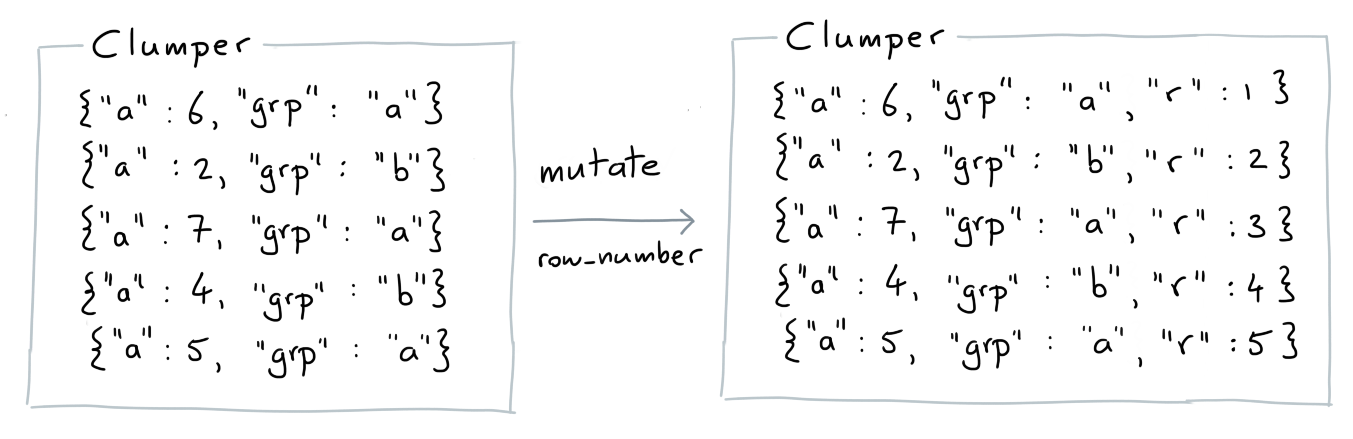 Clumper
{"a" : 6, "grp" : "a"}
{"a" : 2, "grp" : "b"}
{"a" : 7, "grp" : "a"}
{"a" : 4, "grp" : "b"}
{"a" : 5, "grp" : "a"}
mutate
row_number
Clumper
{"a" : 6, "grp" : "a", "r" : 1}
{"a" : 2, "grp" : "b", "r" : 2}
{"a" : 7, "grp" : "a", "r" : 3}
{"a" : 4, "grp" : "b", "r" : 4}
{"a" : 5, "grp" : "a", "r" : 5}